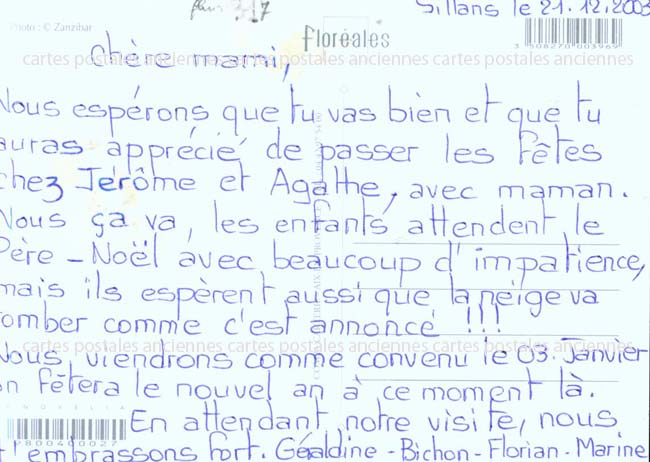 Sillans le 21.12.2003
Photo : © Zanzibar
floréales
3 508270 003969
Chère mami,
cartes postales anciennes cartes postales anciennes cartes postales anciennes
Nous espérons que tu vas bien et que tu
auras apprécié de passer les fêtes
chez Jérôme et Agathe, avec maman.
Nous ça va, les enfants attendent le
Père - Noël avec beaucoup d'impatience,
mais ils espèrent aussi que la neige va
tomber comme c'est annoncé !!!
cartes postales anciennes cartes postales anciennes cartes postales anciennes
Nous viendrons comme convenu le 03. Janvier
on fêtera le nouvel an à ce moment là.
NOVELLA
En attendant notre visite, nous
9800400027
t'embrassons fort. Géraldine - Bichon - Florian - Marine